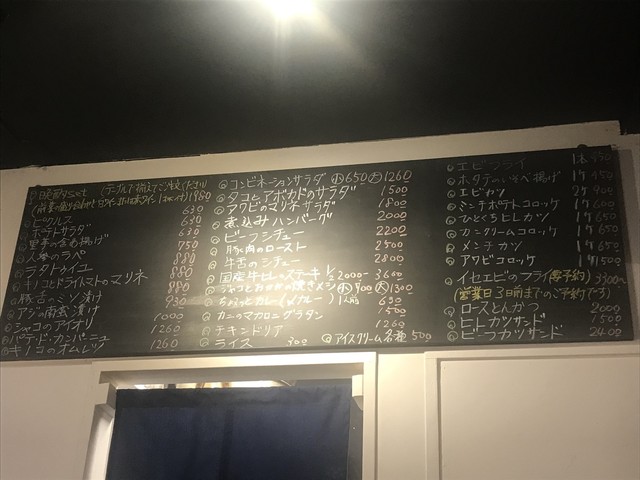 ピクルス 630
ポテトサラダ 630
里芋の含め揚げ 750
人参のラペ 630
ラタトゥイユ 880
キノコとドライトマトのマリネ 880
豚舌のミソ漬け 880
アジの南蛮漬け 930
シャコのアイオリ 1000
パテドカンパーニュ 1260
キノコのオムレツ 1260
コンビネーションサラダ 小650 大1260
タコとアボカドのサラダ 1500
アワビのマリネサラダ 1800
煮込みハンバーグ 2000
ビーフシチュー 2200
豚肉のロースト 2500
牛舌のシチュー 2800
国産牛ヒレステーキ 1/2 2000- 3600
じゃことおかかの焼きメシ 小900 大1300
ちょっとカレー 1人前 650
カニのマカロニグラタン 1500
チキンドリア 1260
ライス 300
アイスクリーム各種 500
エビフライ 1本 450
ホタテのいそべ揚げ 1ケ 450
エビカツ 2ケ 900
ミンチポテトコロッケ 1ケ 600
ひとくちヒレカツ 1ケ 650
カニクリームコロッケ 1ケ 650
メンチカツ 1ケ 650
アワビコロッケ 1ケ 1500
イセエビのフライ(要予約) 3300
(営業日3日前までのご予約です)
ロースとんかつ 2000
ヒレカツサンド 1500
ビーフカツサンド 2400